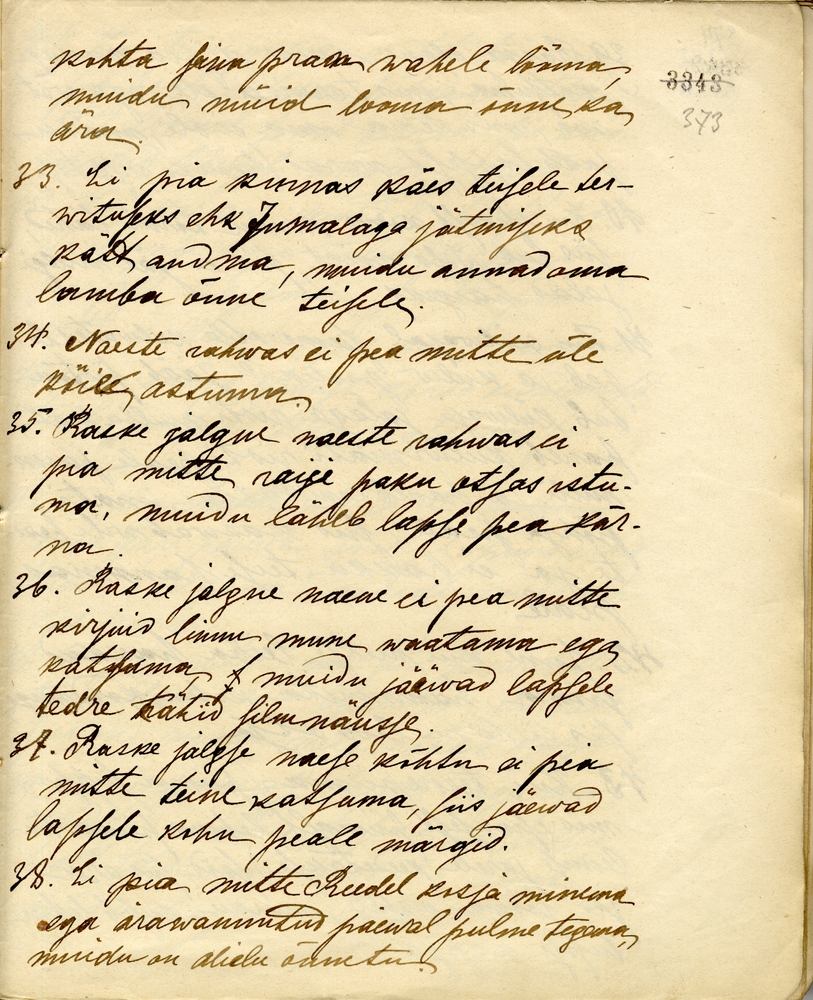 kohta sinu praau wahele lööma,
muidu müid looma õnne ka
ära.
3343
373
33. Ei pia kinnas käes teisele ter-
wituseks ehk Jumalaga jätmiseks
kätt andma, muidu annad oma
lamba õnne teisele.
34. Naeste rahwas ei pea mitte üle
köie astuma.
35. Raske jalgne naeste rahwas ei
pia mitte raije paku otsas istu-
ma, muidu läheb lapse pea kär-
na.
36. Raske jalgne naene ei pea mitte
kirjuid linnu mune waatama ega
katsuma, muidu jääwad lapsele
tedre tähid silmnäusse.
37. Raske jalgse naese kõhtu ei pia
mitte teine katsuma, siis jäewad
lapsele kohu peale märgid.
38. Ei pia mitte Reedel kosja minema
ega ärawannutud päewal pulme tegema,
muidu on alielu õnnetu.